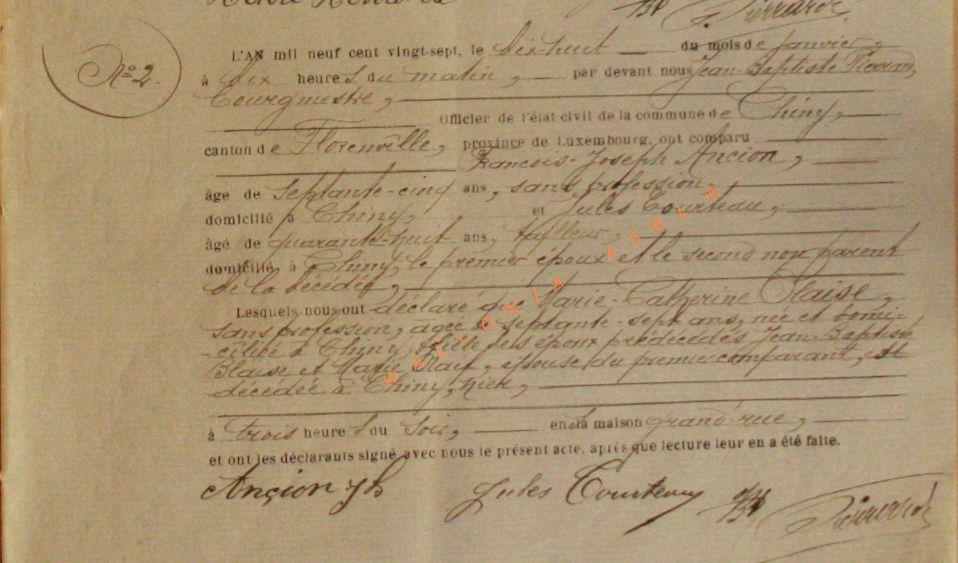 No 2.
L'AN mil neuf cent vingt-sept, le dix-huit du mois de janvier,
à dix heures du matin, par devant nous Jean-Baptiste Pierrard,
Bourgmestre,
Officier de l'état civil de la commune de Chiny,
canton de Florenville, province de Luxembourg, ont comparu
François-Joseph Ancion,
âge de septante-cinq ans, sans profession,
domicilié à Chiny, et Jules Courteau,
âgé de quarante-huit ans, tailleur,
domicilié à Chiny, le premier époux et le second non parent
de la décédée,
Lesquels nous ont déclaré que Marie-Catherine Blaise,
sans profession, agée de septante-sept ans, née et domi-
-ciliée à Chiny, fille des époux prédécédés Jean-Baptiste
Blaise et Marie, épouse du premier comparant, est
décédée à Chiny, hier,
à trois heures du soir, en sa maison grand'rue,
et ont les déclarants signé avec nous le présent acte, après que lecture leur en a été faite.
Ançion jh Jules Courteau Pierrard
WALLONIA ASBL ©